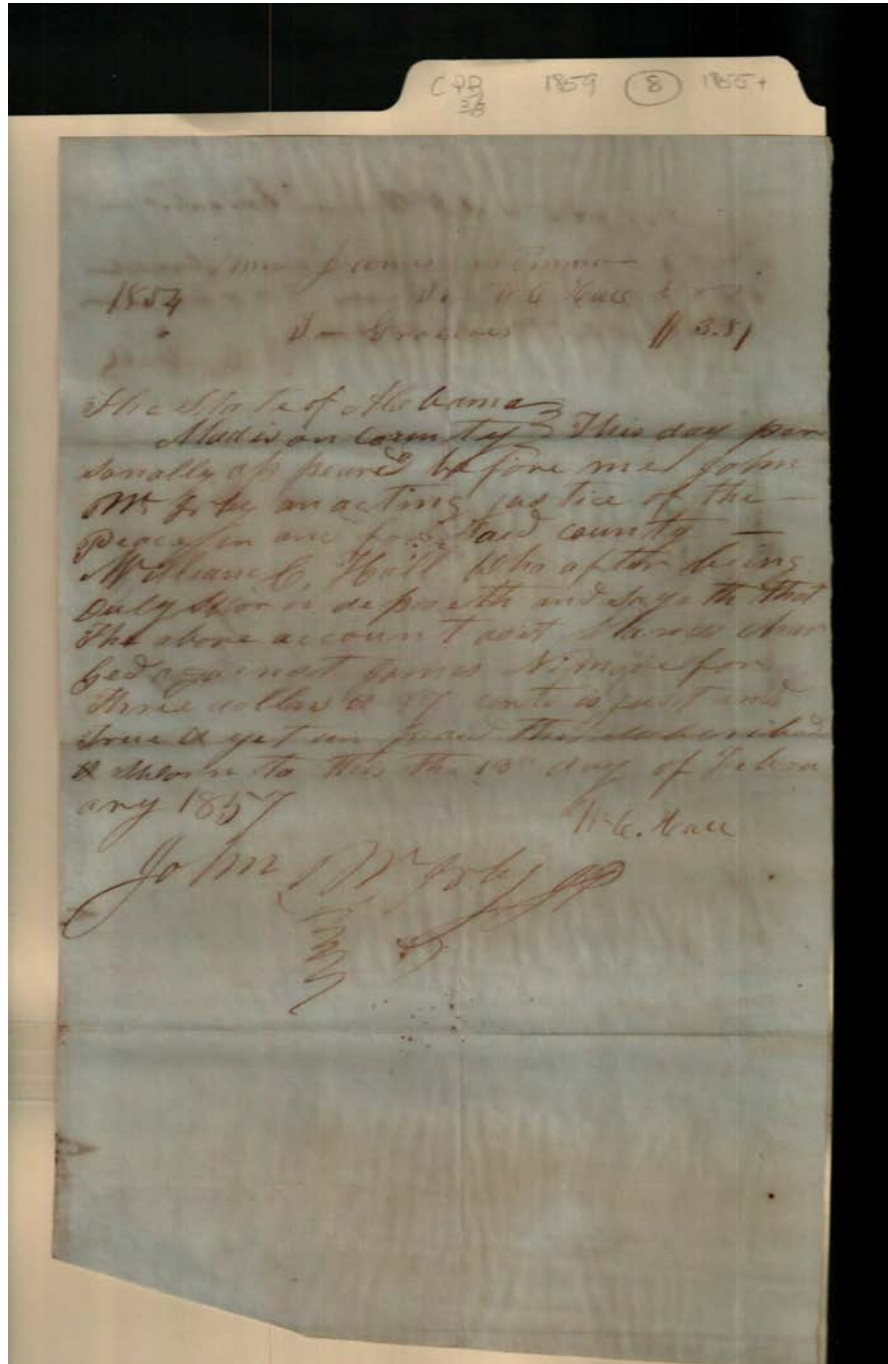 CPB 1859 8 1855+
36
1854 W C Hall
$ 3.81
The State of Alabama
Madison county } This day per
sonally ap peared before me John
Mc Irby an acting jus tice of the —
Peace in and for said county —
William C. Hall Who after being
duly sworn deposeth and sayeth that
The above account as it stands char
ged against James for
three dollars & cents is just and
true & yet un paid this subscribed
& sworn to this the 13th day of Febru
ary 1857
W. C. Hall
John Mc Irby JP